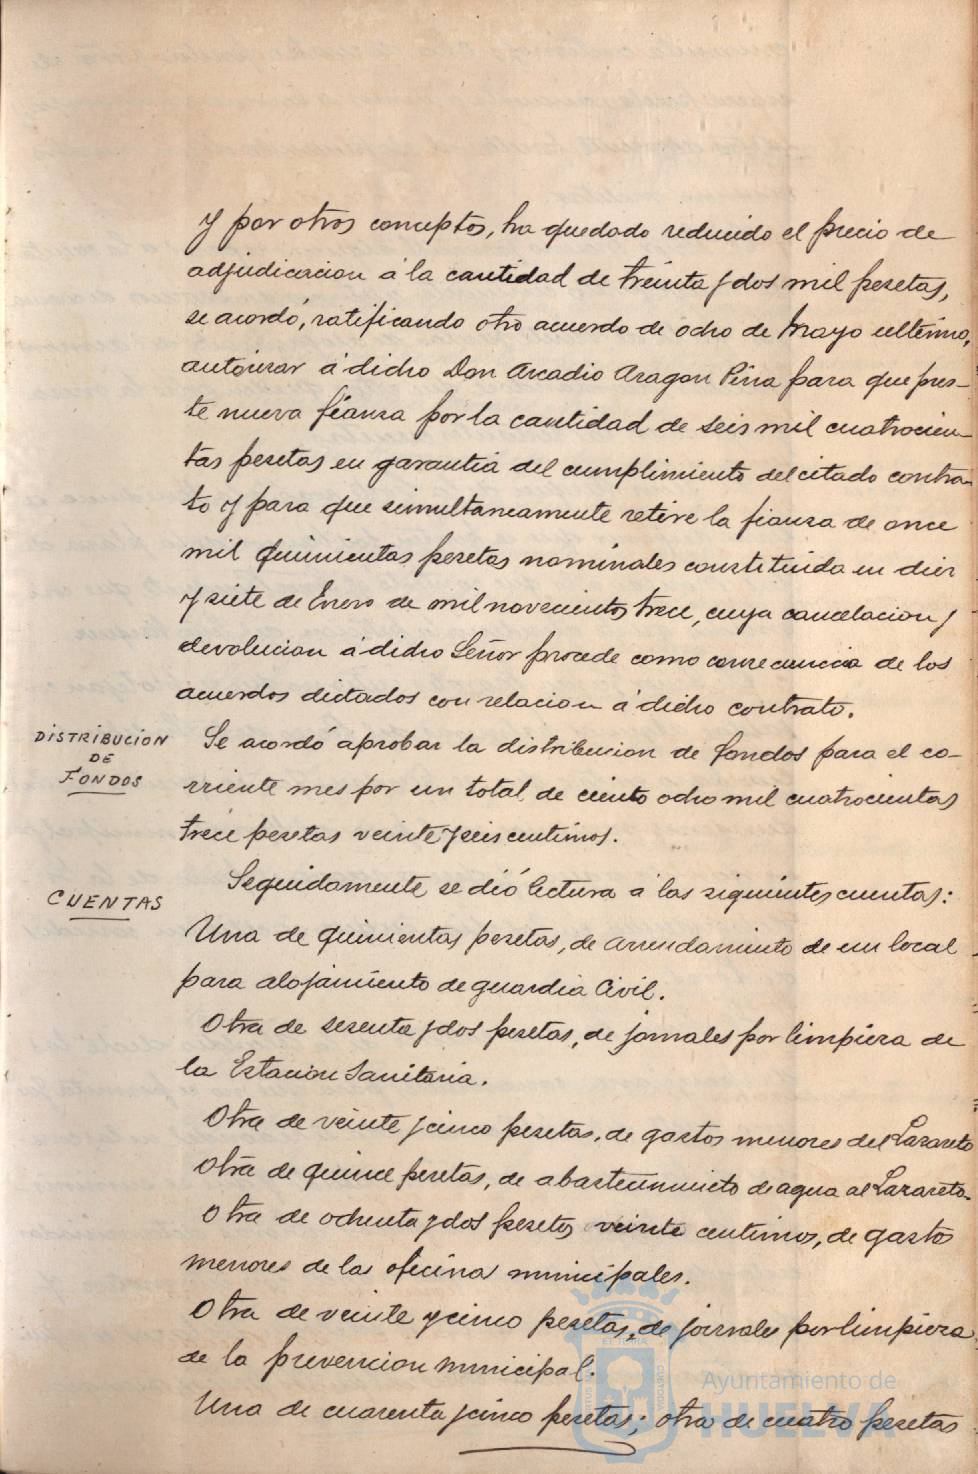 y por otros conceptos, ha quedado reducido el precio de
adjudicacion á la cantidad de treinta y dos mil pesetas,
se acordó, ratificando otro acuerdo de ocho de Mayo ultimo,
autorizar á dicho Don Arcadio Aragon Piña para que pres-
te nueva fianza por la cantidad de seis mil cuatrocien-
tas pesetas en garantia del cumplimiento del citado contra-
to y para que simultaneamente retire la fianza de once
mil quinientas pesetas nominales constituida en diez
y siete de Enero de mil novecientos trece, cuya cancelacion y
devolucion á dicho Señor procede como consecuencia de los
acuerdos dictados con relacion á dicho contrato.
DISTRIBUCION
DE
FONDOS
Se acordó aprobar la distribucion de fondos para el co-
rriente mes por un total de ciento ocho mil cuatrocientas
trece pesetas veinte y seis centimos.
CUENTAS
Seguidamente se dió lectura á las siguientes cuentas:
Una de quinientas pesetas, de arrendamiento de un local
para alojamiento de guardia Civil.
Otra de sesenta y dos pesetas, de jornales por limpieza de
la Estacion Sanitaria.
Otra de veinte y cinco pesetas, de gastos menores del Lazareto
Otra de quince pesetas, de abastecimiento de agua al Lazareto.
Otra de ochenta y dos pesetas veinte centimos, de gastos
menores de las oficinas municipales.
Otra de veinte y cinco pesetas, de jornales por limpieza
de la prevencion municipal.
Una de cuarenta y cinco pesetas; otra de cuatro pesetas
Ayuntamiento de
HUELVA